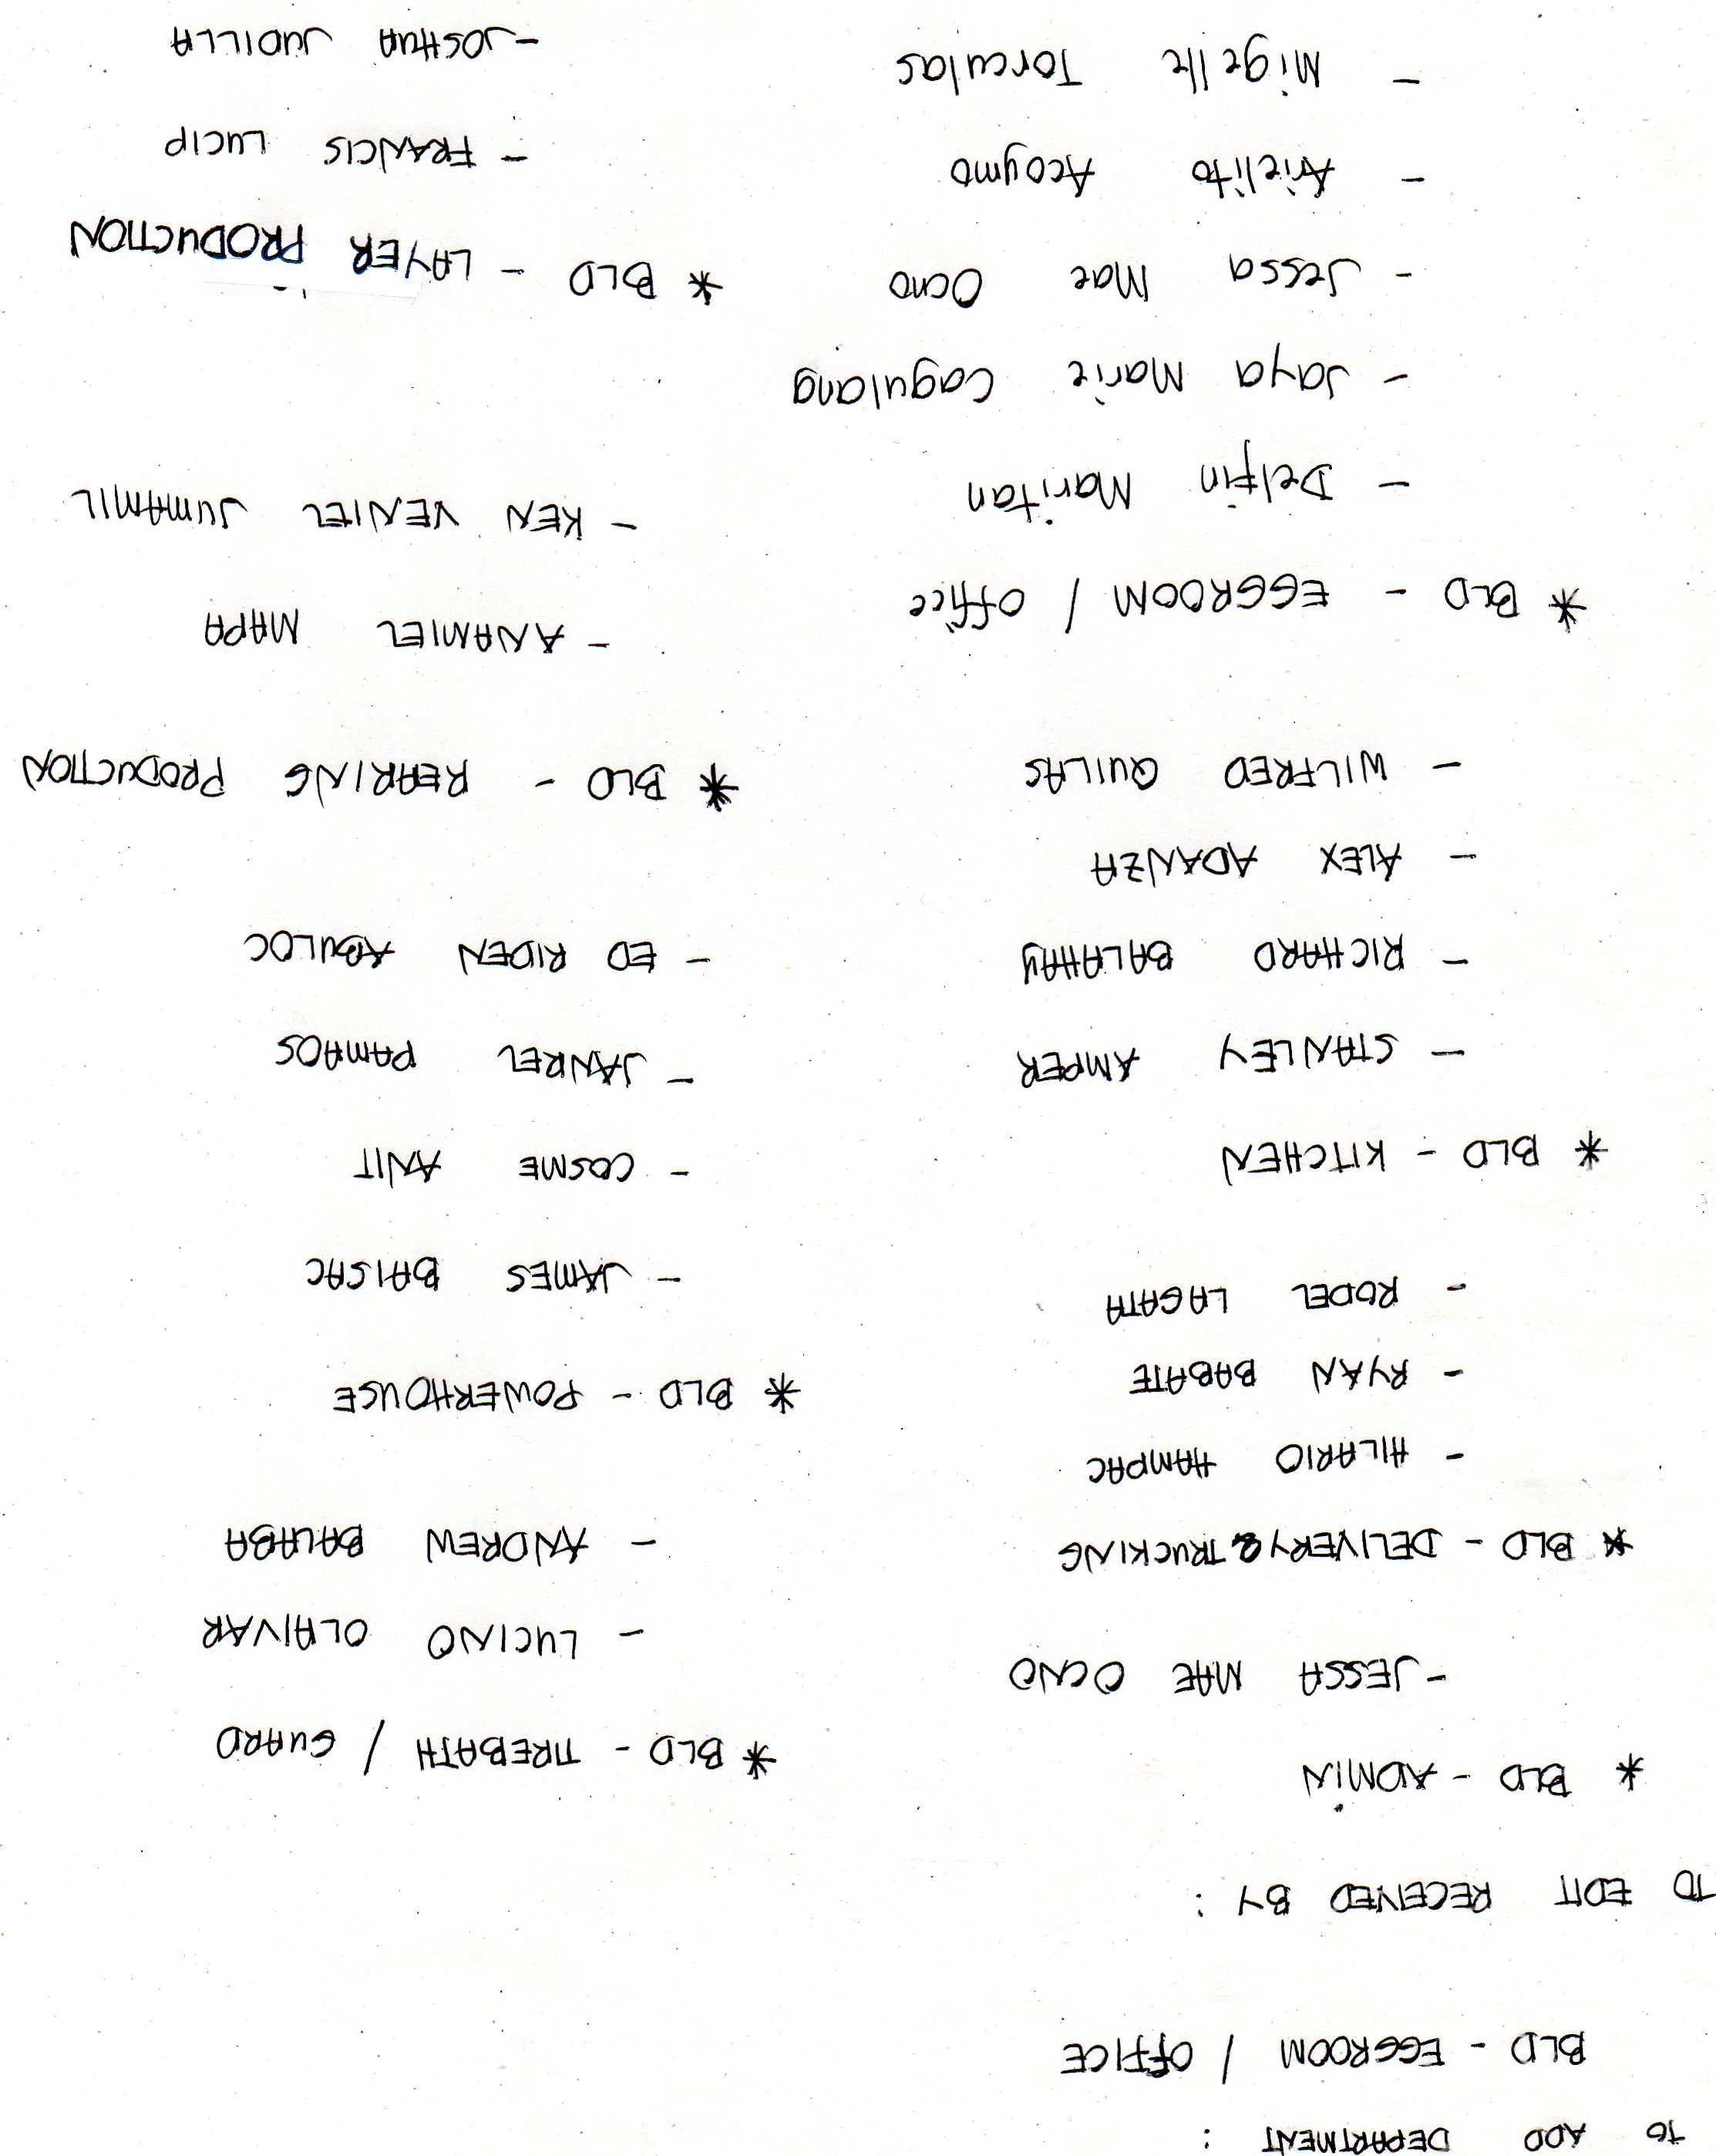 TO ADD DEPARTMENT :
BLD - EGGROOM / OFFICE
TO EDIT RECEIVED BY :
* BLD - ADMIN
- JESSA MAE OCNO
* BLD - DELIVERY & TRUCKING
- HILARIO HAMPAC
- RYAN BABATE
- RODEL LAGATA
* BLD - KITCHEN
- STANLEY AMPER
- RICHARD BALAHAY
- ALEX ADANZA
- WILFRED QUILAS
* BLD - EGGROOM / Office
- Delfin Maritan
- Jaya Marie Cagulang
- Jessa Mae Ocno
- Arielito Acoymo
- Migelle Torculas
* BLD - TIREBATH / GUARD
- LUCINO OLAIVAR
- ANDREW BALABA
* BLD - POWERHOUSE
- JAMES BAISAC
- COSME ANIT
- JANREL PAMAOS
- ED RIDEN ABULOC
* BLD - REARING PRODUCTION
- ANAMIEL MAPA
- KEN VENIEL JUMAMIL
* BLD - LAYER PRODUCTION
- FRANCIS LUCIP
- JOSHUA JUDILLA